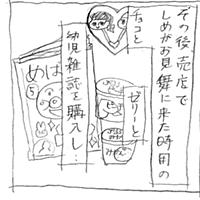 その後売店で
しめがお見舞に来た時用の
チョコと
ゼリーと
幼児雑誌を購入し…
めば
5
みかん